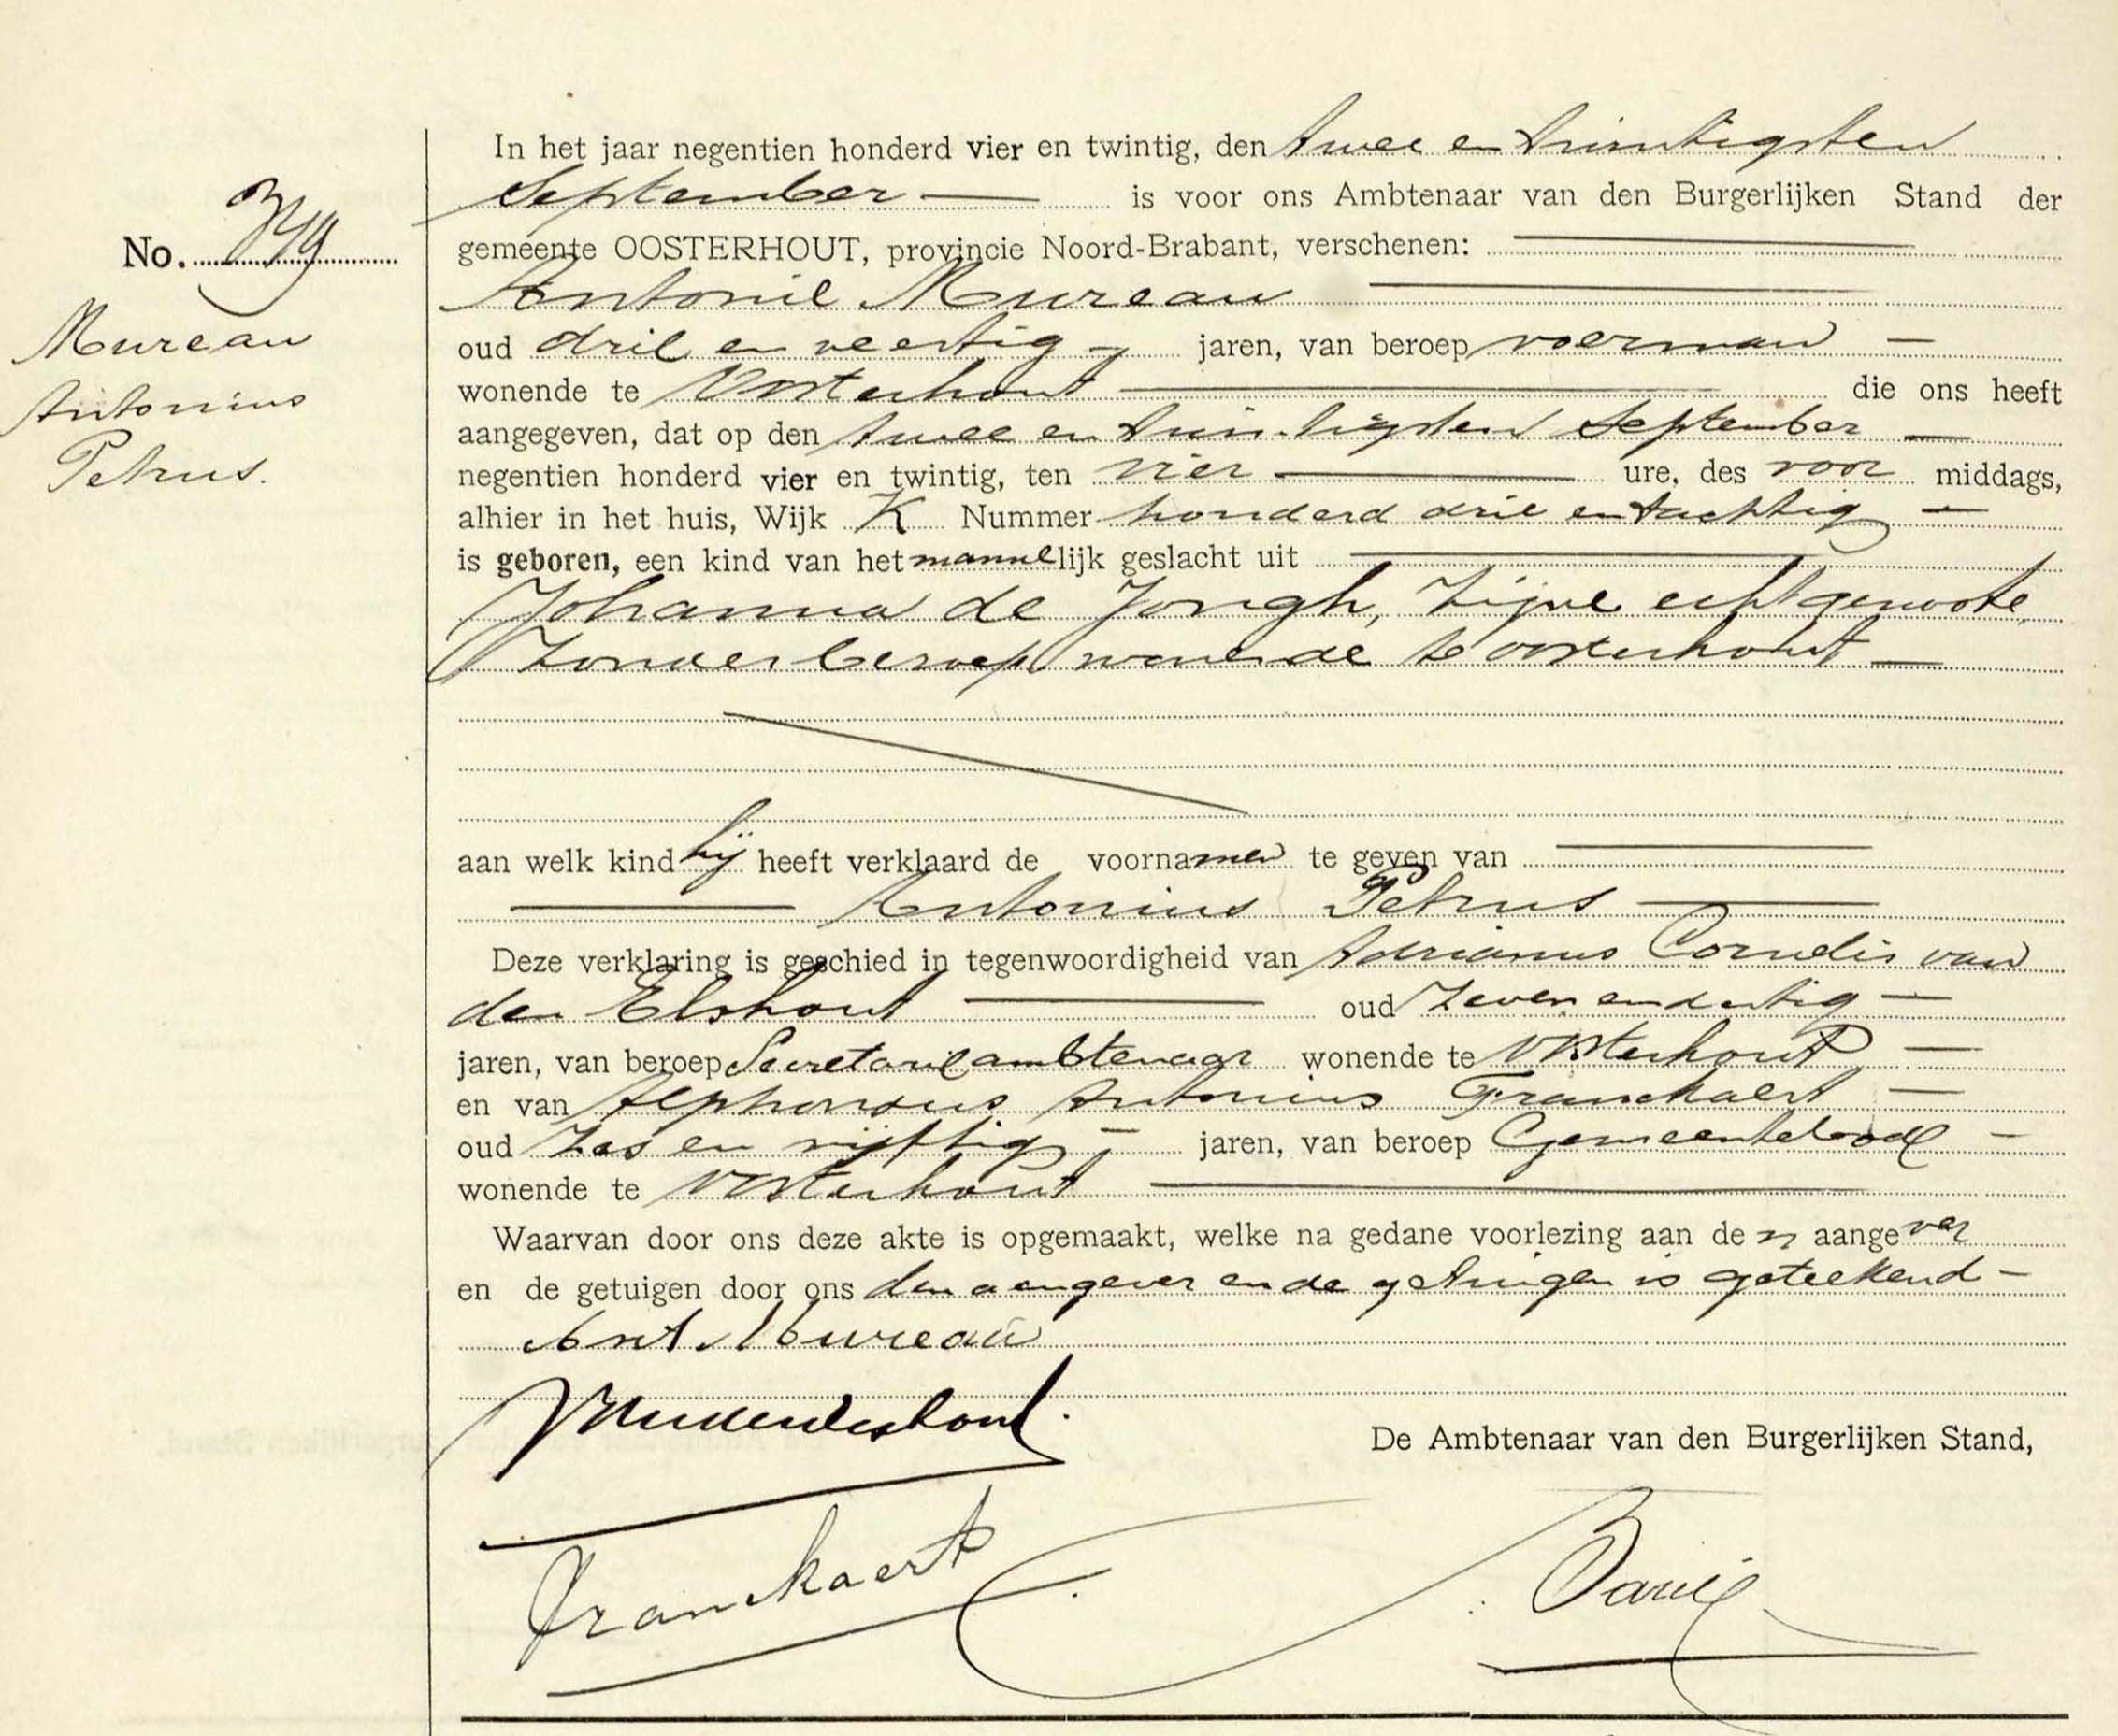 In het jaar negentien honderd vier en twintig, den twee en twintigsten
September is voor ons Ambtenaar van den Burgerlijken Stand der
gemeente OOSTERHOUT, provincie Noord-Brabant, verschenen:
Antonie Mureau
oud drie en veertig jaren, van beroep voerman
wonende te Oosterhout die ons heeft
aangegeven, dat op den twee en twintigsten September
negentien honderd vier en twintig, ten vier ure, des voor middags,
alhier in het huis, Wijk K Nummer honderd drie en tachtig
is geboren, een kind van het mannelijk geslacht uit
Johanna de Jongh, zijne echtgenoote,
zonder beroep wonende te Oosterhout
aan welk kind hij heeft verklaard de voornamen te geven van
Antonius Petrus
Deze verklaring is geschied in tegenwoordigheid van Adrianus Cornelis van
den Elshout oud zeven en dertig
jaren, van beroep Secretarieambtenaar wonende te Oosterhout
en van Alphonsus Antonius Franckaert
oud zes en vijftig jaren, van beroep Gemeentebode
wonende te Oosterhout
Waarvan door ons deze akte is opgemaakt, welke na gedane voorlezing aan den aangever
en de getuigen door ons den aangever en de getuigen is geteekend
Ant Mureau
De Ambtenaar van den Burgerlijken Stand,
Franckaert
No. 349
Mureau
Antonius
Petrus.